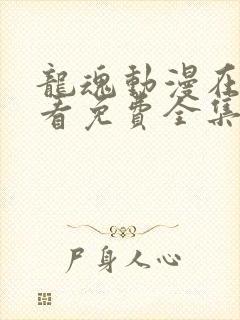 龍魂動漫在
看免費全集
尸身人心